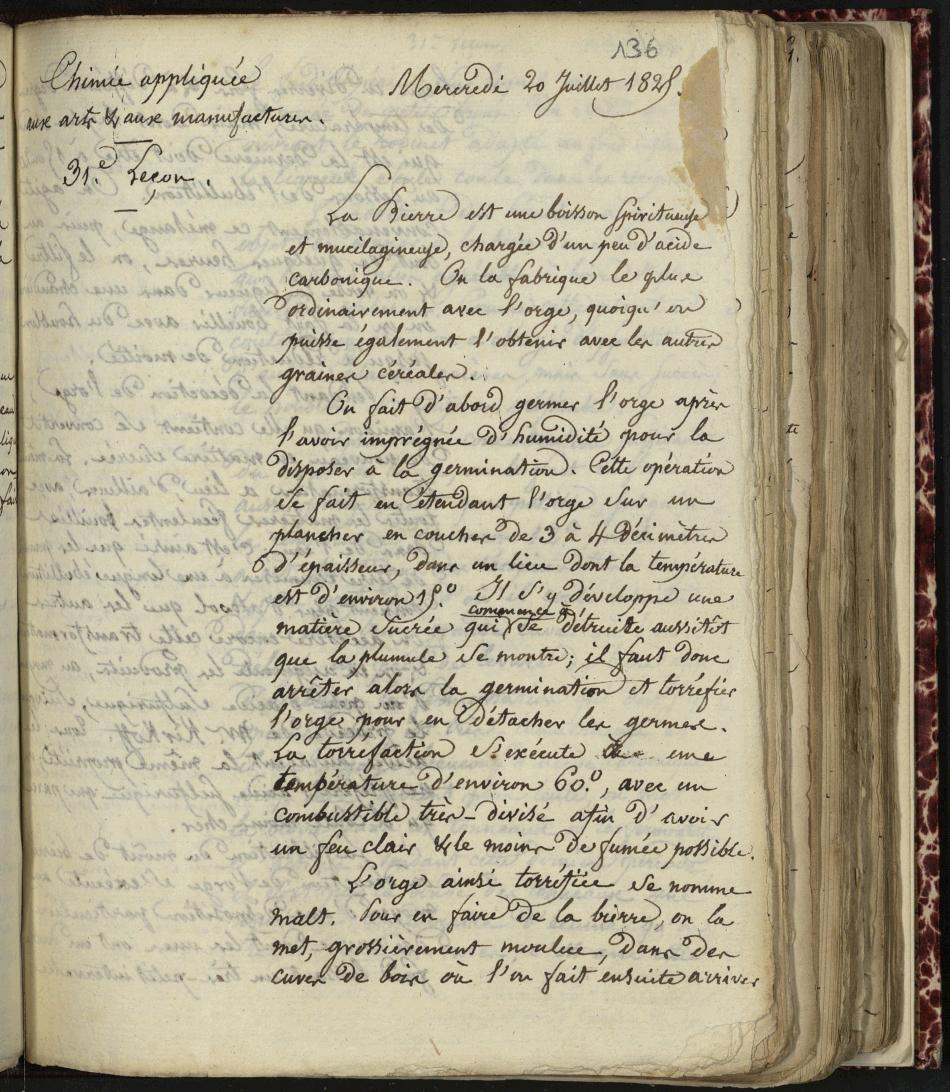 136
Chimie appliquée
aux arts & aux manufactures.
Mercredi 20 Juillet 1825.
31.e Leçon.
La Bierre est une boisson spiritueuse
et mucilagineuse, chargée d'un peu d'acide
carbonique. On la fabrique le plus
ordinairement avec l'orge, quoiqu'on
puisse également l'obtenir avec les autres
graines céréales.
On fait d'abord germer l'orge après
l'avoir imprégnée d'humidité pour la
disposer à la germination. Cette opération
se fait en étendant l'orge sur un
plancher en couches de 3 à 4 décimètres
d'épaisseur, dans un lieu dont la température
est d'environ 15.° Il s'y développe une
commence à
matière sucrée qui se détruite aussitôt
que la plumule se montre; il faut donc
arrêter alors la germination et torréfier
l'orge pour en détacher les germes.
La torréfaction s'exécute à une
température d'environ 60.°, avec un
combustible très-divisé afin d'avoir
un feu clair & le moins de fumée possible.
L'orge ainsi torréfiée se nomme
malt. Pour en faire de la bierre, on la
met, grossièrement moulue, dans des
cuves de bois où l'on fait ensuite arriver